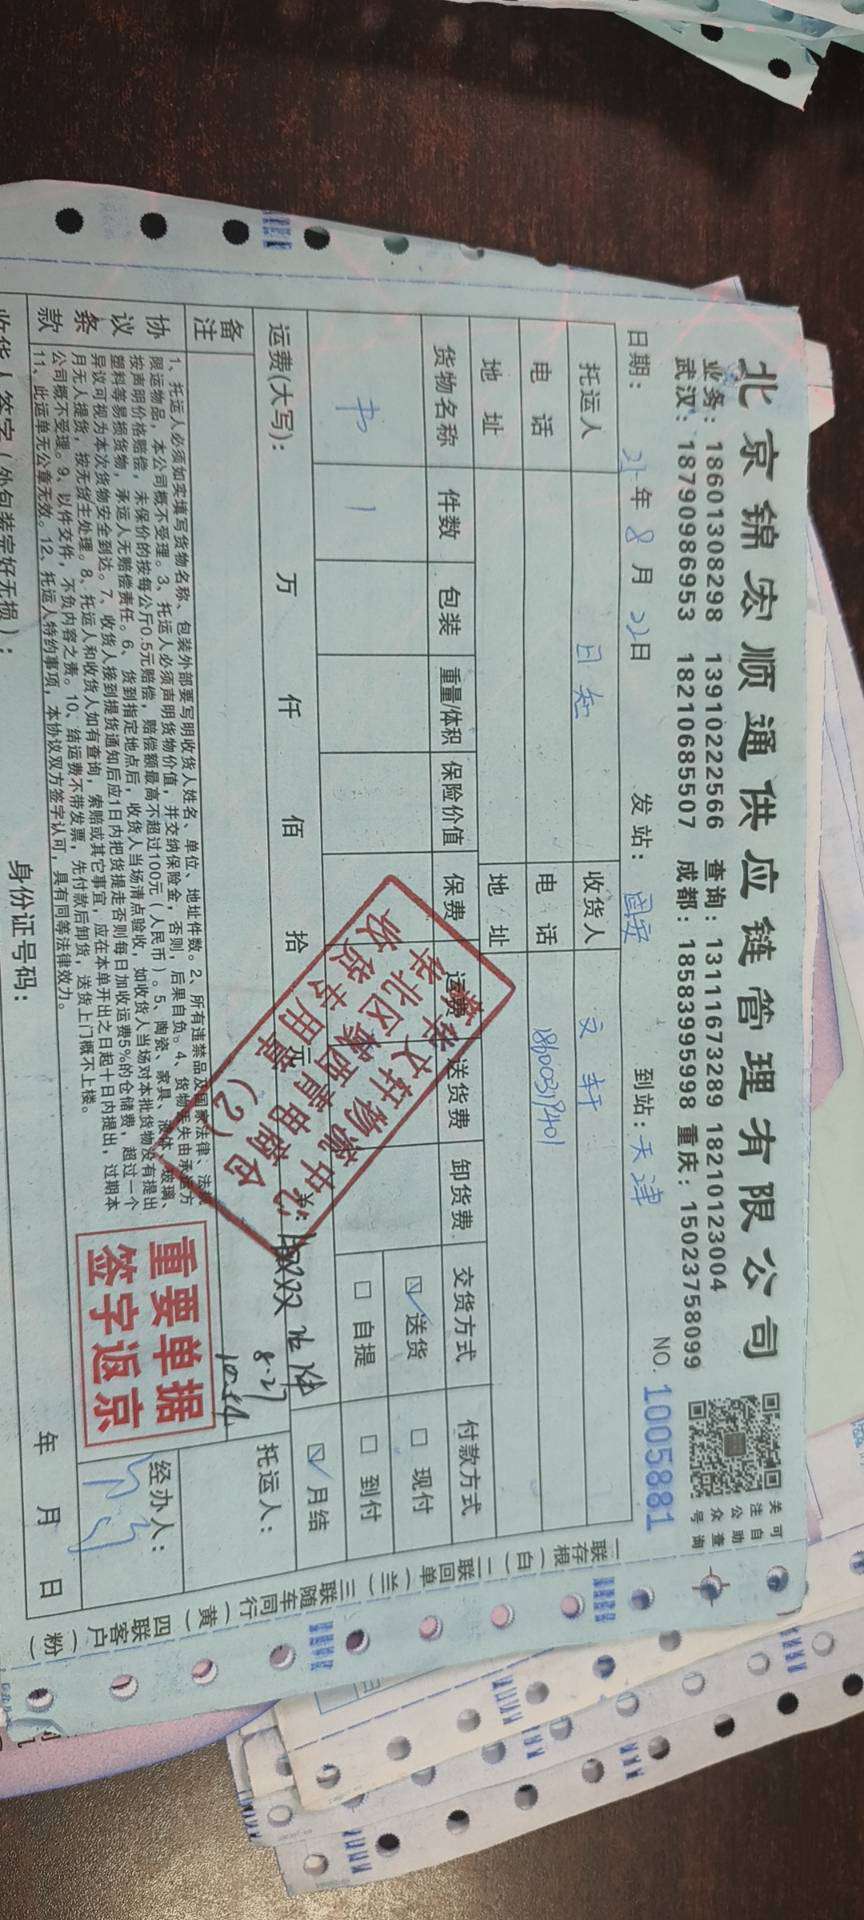 北京锦宏顺通供应链管理有限公司
业务：18601308298 13910222566 查询：13111673289 18210123004
武汉：18790986953 18210685507 成都：18583995998 重庆：15023758099
关注公众号
可自助查询
日期： 年 8 月 日 发站：固安 到站：天津 NO. 1005881
托运人 日知 收货人 文轩
电话 电话
地址 地址
货物名称 件数 包装 重量/体积 保险价值 保费 运费 送货费 卸货费 交货方式 付款方式
书 1 ☑送货 □现付
□自提 □到付
☑月结
运费(大写)： 万 仟 佰 拾 元
备注
8.27
托运人：
协议条款
1、托运人必须如实填写货物名称、包装外部要写明收货人姓名、单位、地址件数。2、所有违禁品及国家法律、法规
限运物品，本公司概不受理。3、托运人必须声明货物价值，并交纳保险金，否则，后果自负。4、货物丢失由承运方
按声明价格赔偿，未保价的按每公斤0.5元赔偿，赔偿额最高不超过100元（人民币）。5、陶瓷、家具、液体、玻璃、
塑料等易损货物，承运人无赔偿责任。6、货到指定地点后，收货人当场清点验收，如收货人当场对本批货物没有提出
异议可视为本次货物安全到达。7、收货人接到提货通知后应1日内把货提走否则每日加收运费5%的仓储费，超过一个
月无人提货，按无货主处理。8、托运人和收货人如有查询，索赔或其它事宜，应在本单开出之日起十日内提出，过期本
公司概不受理。9、以件交件，不负内容之责。10、结运费不带发票，先付款后卸货，送货上门概不上楼。
11、此运单无公章无效。12、托运人特约事项，本协议双方签字认可，具有同等法律效力。
重要单据
签字返京
经办人：
收货人签字（外包装完好无损）： 身份证号码： 年 月 日
一联存根（白） 二联回单（兰） 三联随车同行（黄） 四联客户（粉）